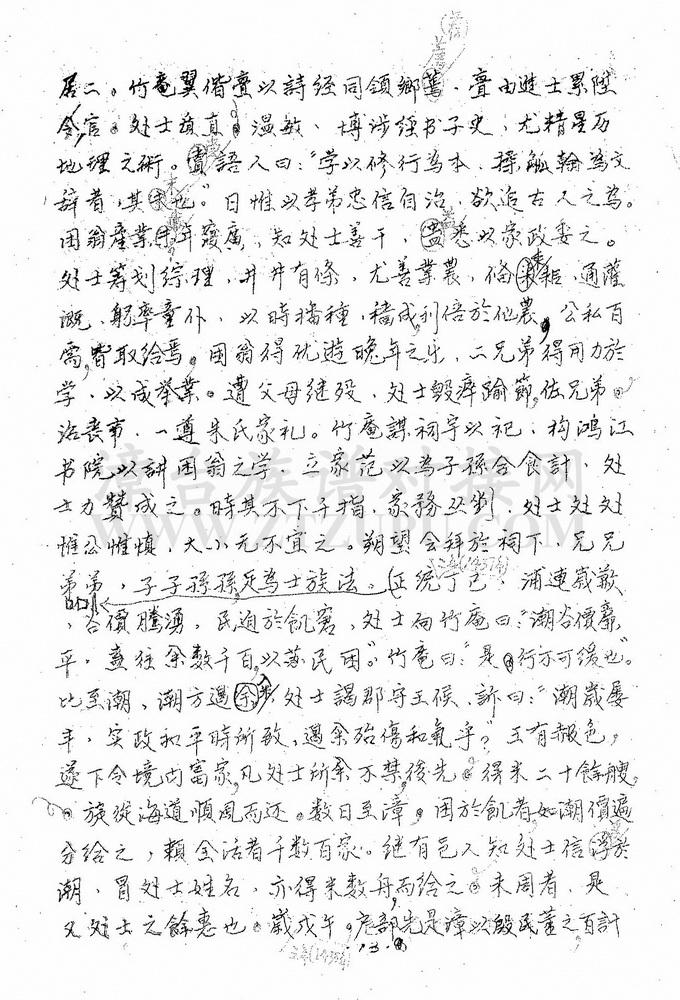 居二。竹奄翼偕亶以詩經同領鄉薦,亶由進士累陞
令官。处士質直溫敏、博涉經书子史,尤精星历
地理之術。嘗語人曰:“学以修行為本,操觚翰為文
辞者,其末也”。日惟以孝弟忠信自治,欲追古人之為。
困翁產業年廣,知处士善干,盡悉以家政委之。
处士筹划綜理,井井有條,尤善業農,俻耒耜,通灌
溉,躬率童仆,以時播種,穡成利倍於他農,公私百
需,皆取給焉。困翁得优遊晚年之乐,二兄弟得用力於
学,以成举業。遭父母继殁,处士毀瘠踰節,佐兄弟
治丧事,一尊朱氏家礼。竹奄謀祠宇以祀,构鴻江
书院以講困翁之学,立家范以為子孫合食計,处
士力贊成之。時其不下千指,家務丛剉,处士处处
惟公惟慎,大小无不宜之。朔望会拜於祠下,兄兄
弟弟,子子孫孫足為士族法。正统丁巳,浦連歲歉
(1437年)
,谷價騰湧,民迫於飢窘,处士向竹奄曰:“潮谷價廉
平,盍往籴数千百,以苏民困”。竹奄曰:“是行亦可缓也”。
比至潮,潮方遏籴,处士謁郡守王侯,訴曰:“潮歲屡
丰,实政和平時所致,遏籴殆傷和氣乎?”王有赧色,
遂下令境内富家,凡处士所籴不禁,後先得米二十餘艘
。旋從海道順風而还。数日至漳。困於飢者如潮價遍
分给之,賴全活者千数百家。继有邑人知处士信浮於
潮,冒处士姓名,亦得米数舟而给之。未周者,是
又处士之餘惠也。歲戊午,户部先是漳以殷民董之百計
(1438年)
·13·